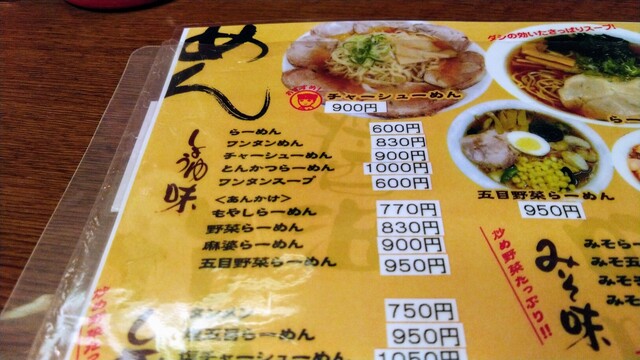 めん
ダシの効いたさっぱりスープ!
チャーシューめん
900円
しょうゆ味
らーめん 600円
ワンタンめん 830円
チャーシューめん 900円
とんかつらーめん 1000円
ワンタンスープ 600円
<あんかけ>
もやしらーめん 770円
野菜らーめん 830円
麻婆らーめん 900円
五目野菜らーめん 950円
タンメン 750円
五目らーめん 950円
塩チャーシューめん 1050円
らー
五目野菜らーめん
950円
炒め野菜たっぷり!!
みそ味
みそら
みそ五
みそ
みそ